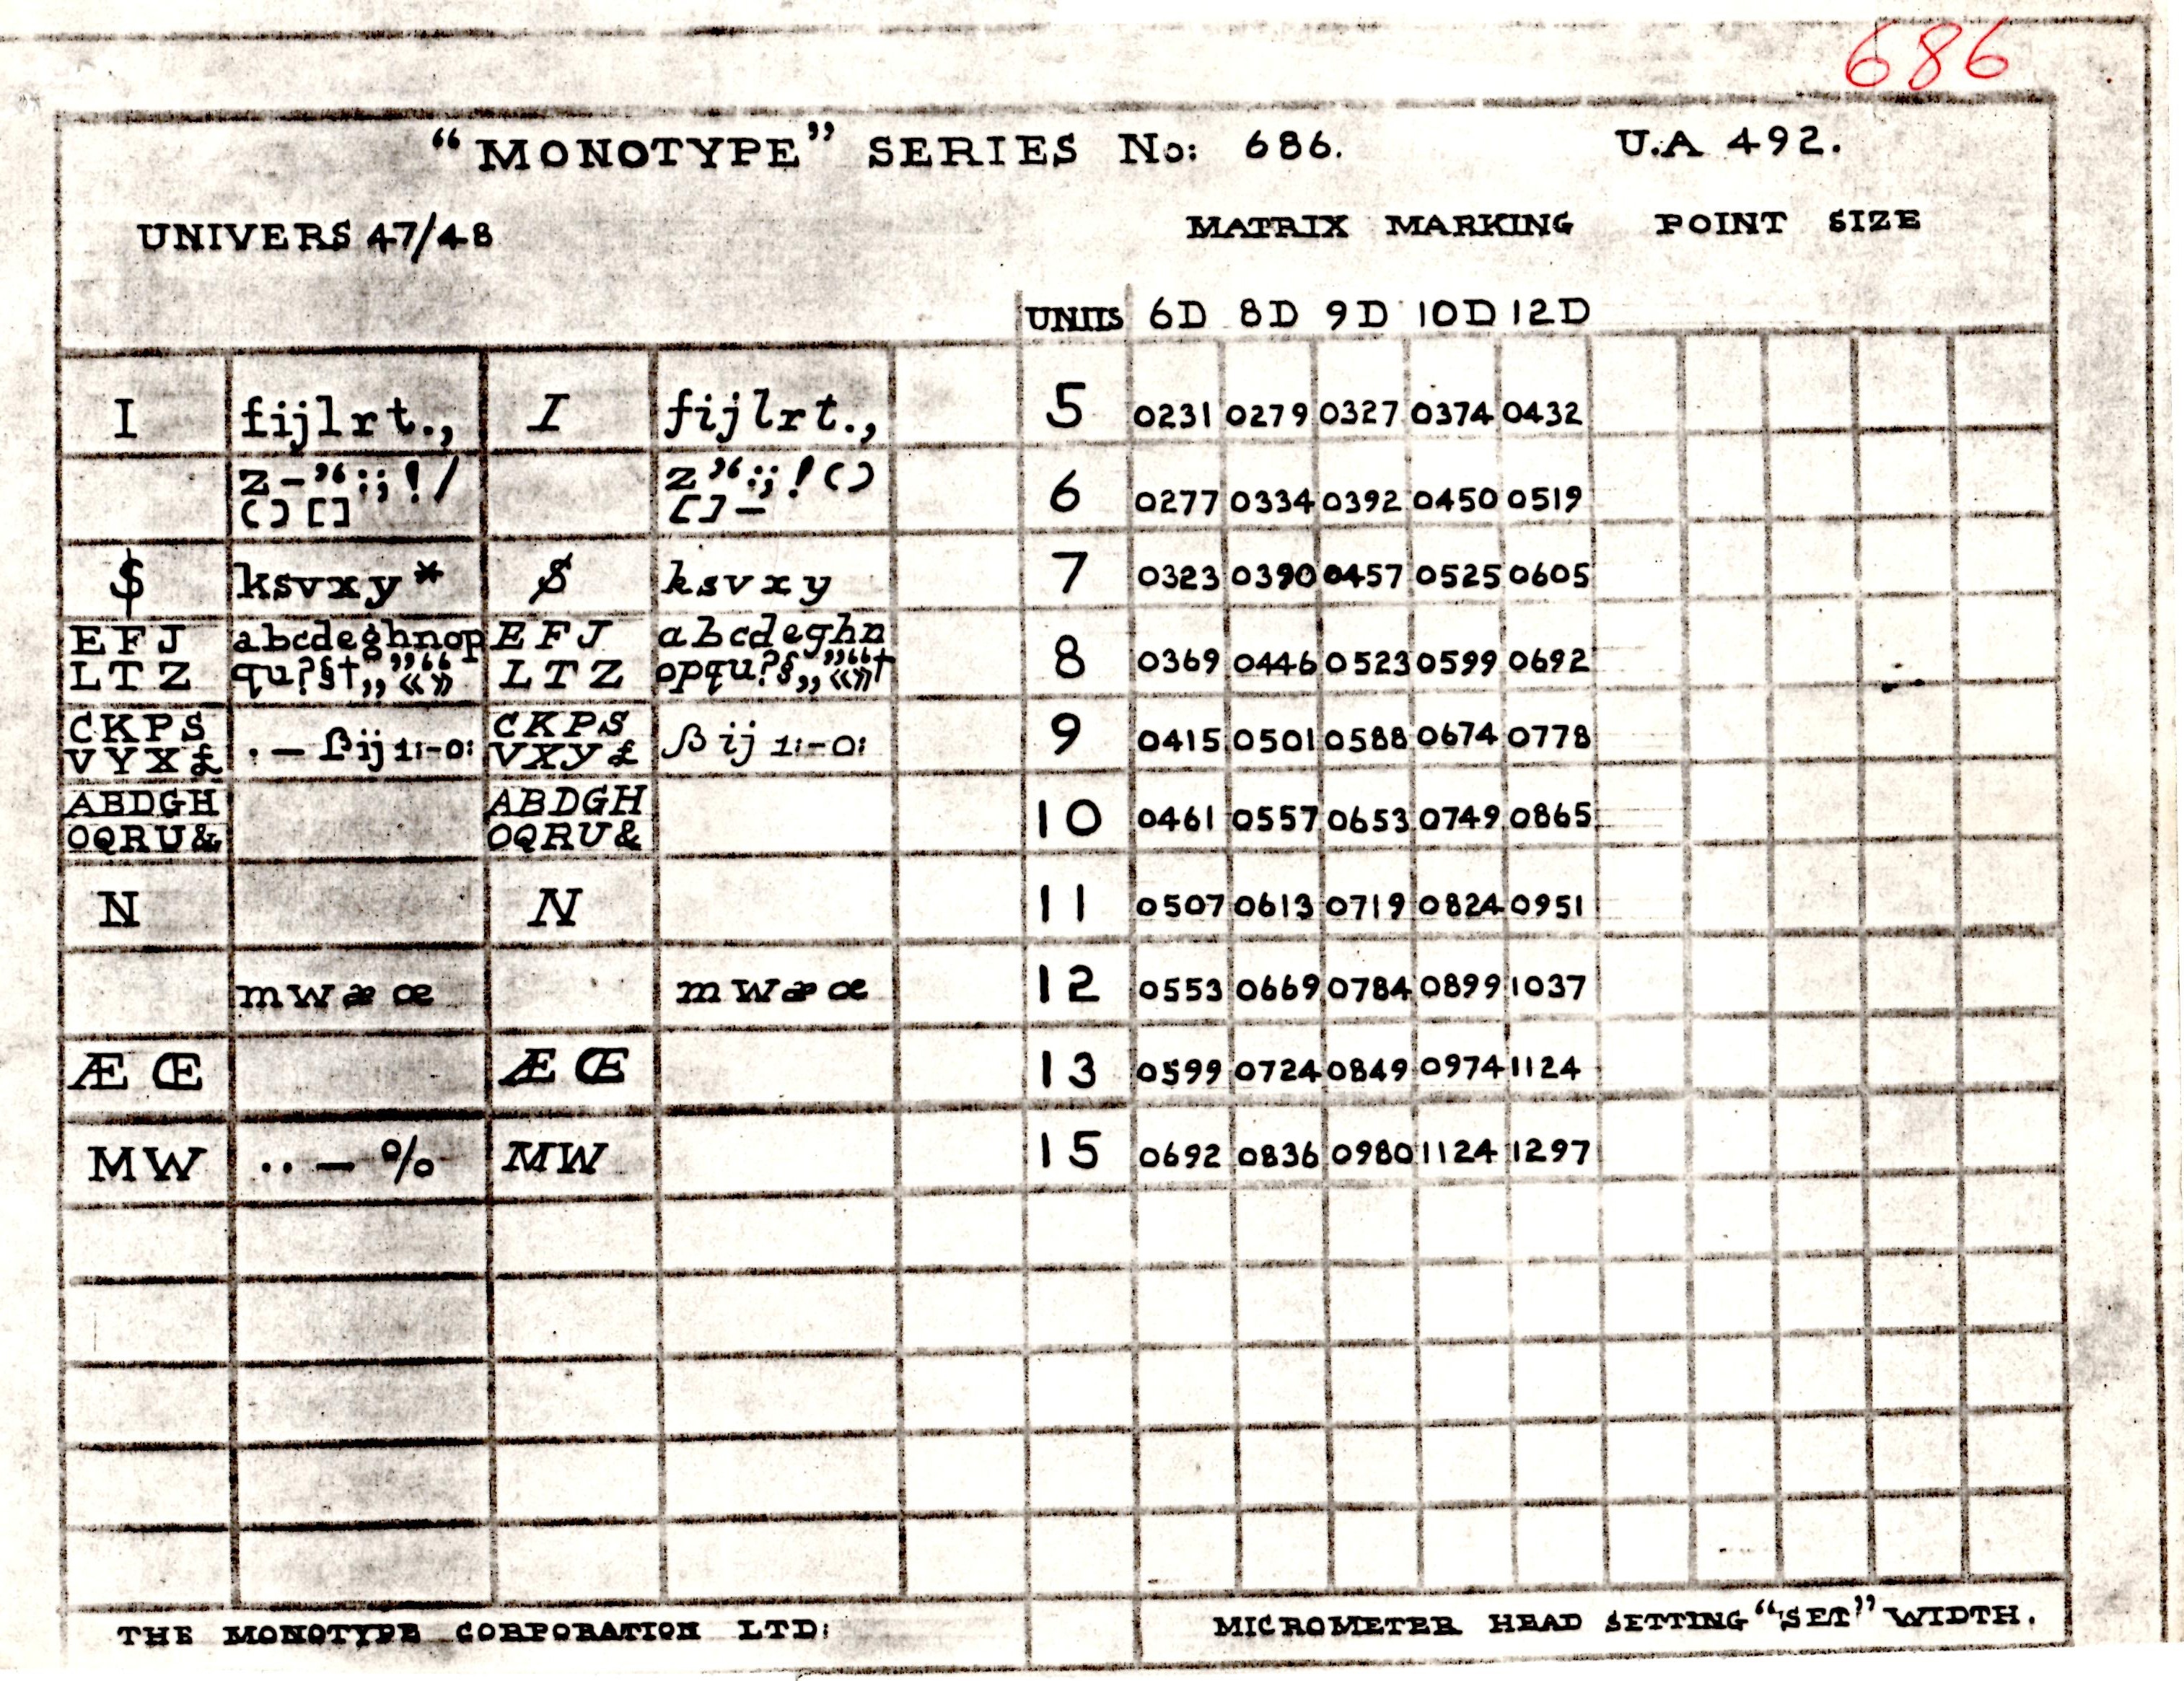 686
“MONOTYPE” SERIES No: 686. U.A 492.
UNIVERS 47/48 MATRIX MARKING POINT SIZE
UNITS 6D 8D 9D 10D 12D
I fijlrt., I fijlrt., 5 0231 0279 0327 0374 0432
z-’‘:;!/ z’‘:;!()
()[] []- 6 0277 0334 0392 0450 0519
$ ksvxy* $ ksvxy 7 0323 0390 0457 0525 0605
EFJ abcdeghnop EFJ abcdeghn
LTZ qu?§†„”“«» LTZ opqu?§„”“«»† 8 0369 0446 0523 0599 0692
CKPS CKPS
VYX£ .— ßij1:-0: VXY£ ßij 1:-0: 9 0415 0501 0588 0674 0778
ABDGH ABDGH
OQRU& OQRU& 10 0461 0557 0653 0749 0865
N N 11 0507 0613 0719 0824 0951
mwæœ mwæœ 12 0553 0669 0784 0899 1037
ÆŒ ÆŒ 13 0599 0724 0849 0974 1124
MW .. — % MW 15 0692 0836 0980 1124 1297
THE MONOTYPE CORPORATION LTD: MICROMETER HEAD SETTING “SET” WIDTH.